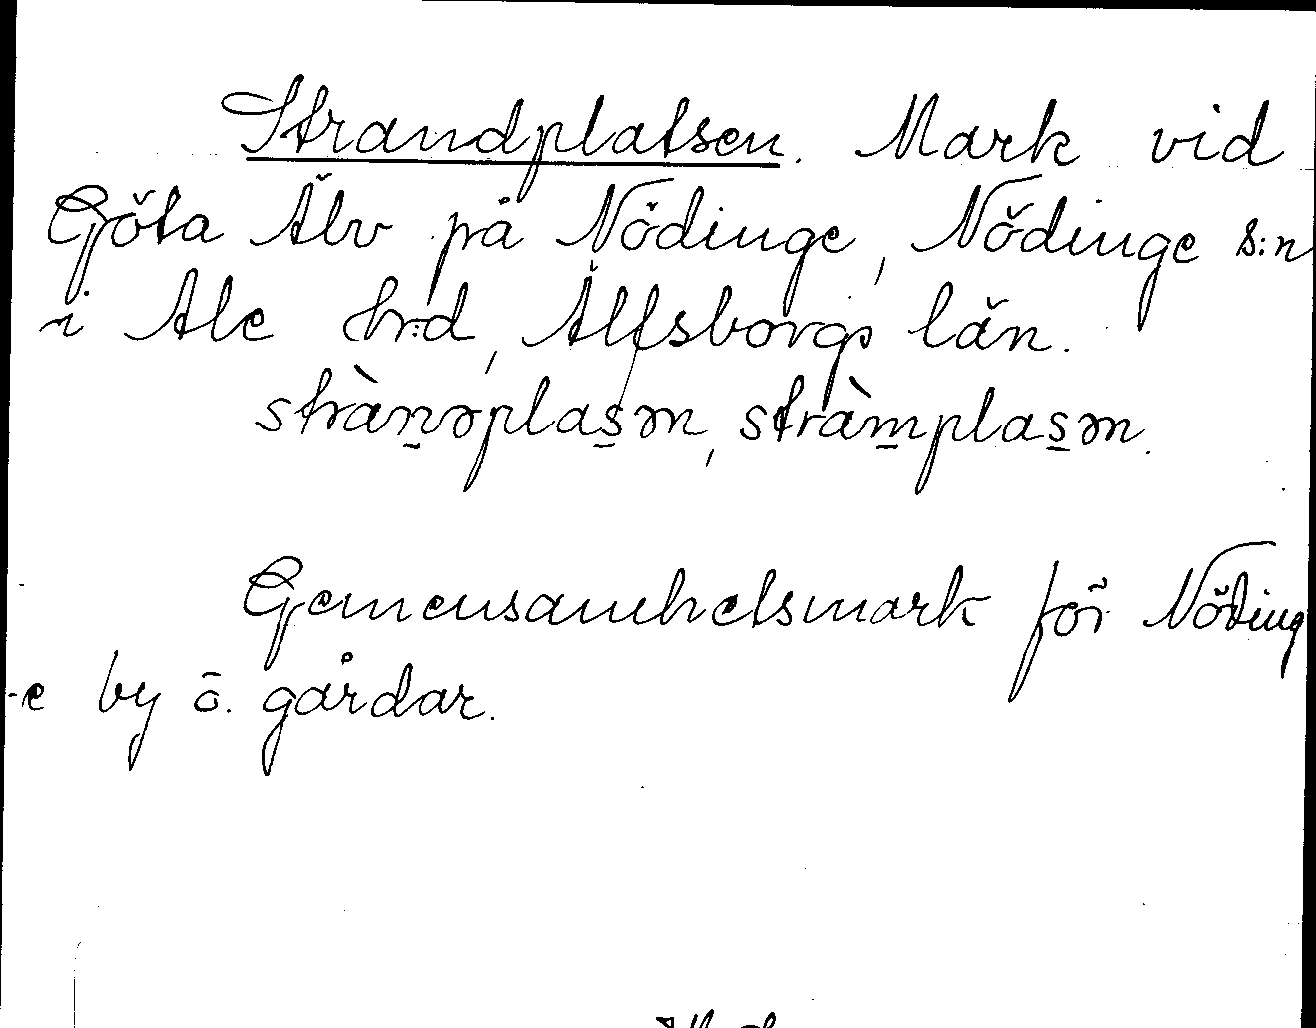 Strandplatsen. Mark vid
Göta Älv på Nödinge, Nödinge s:n
i Ale hrd, Älfsborgs län.
stràn̲əplas̲ən, stràm̲plas̲ən.
Gemensamhetsmark för Nöding
-e by o. gårdar.